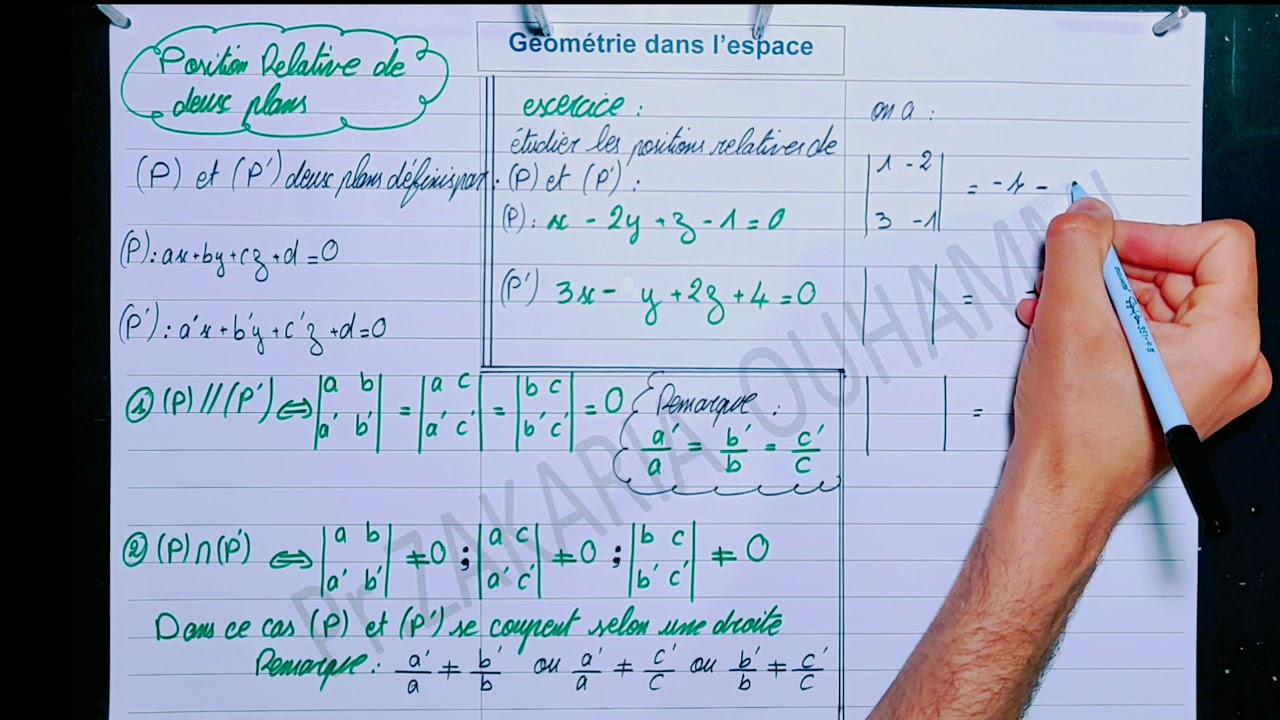 Géométrie dans l'espace
Position Relative de
deux plans
(P) et (P') deux plans définis par :
(P) : ax+by+cz+d=0
(P') : a'x+b'y+c'z+d=0
exercice :
étudier les positions relatives de
(P) et (P') :
(P) : x - 2y + z - 1 = 0
(P') 3x - y + 2z + 4 = 0
on a :
|1 -2|
|3 -1| = -1 -
| | =
| | =
① (P) // (P') ⇔ |a b| = |a c| = |b c| = 0
|a' b'| |a' c'| |b' c'|
Remarque :
a'/a = b'/b = c'/c
② (P) ∩ (P') ⇔ |a b| ≠ 0 ; |a c| ≠ 0 ; |b c| ≠ 0
|a' b'| |a' c'| |b' c'|
Dans ce cas (P) et (P') se coupent selon une droite
Remarque : a'/a ≠ b'/b ou a'/a ≠ c'/c ou b'/b ≠ c'/c
Pr ZAKARIA OUHAMM